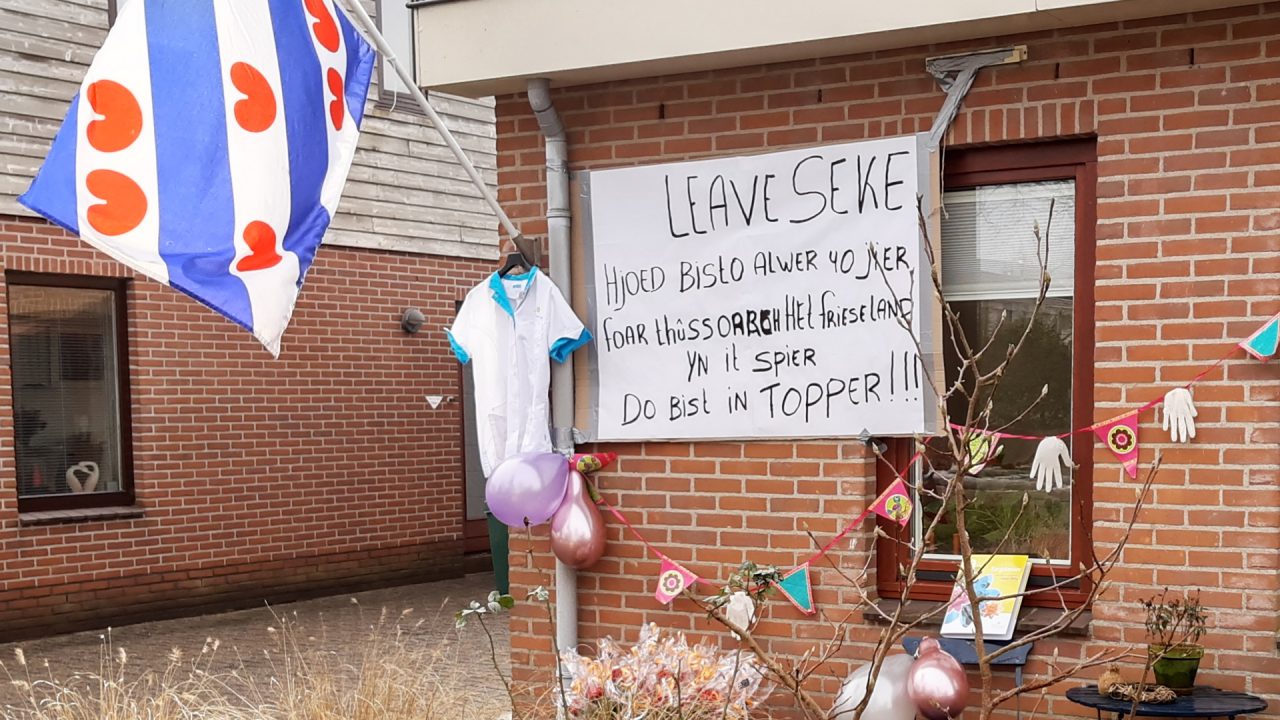 LEAVE SEKE
HJOED BISTO ALWER 40 JIER
FOAR thÛSSOARCH Het frieseLAND
YN it SPIER
DO BIST IN TOPPER!!!